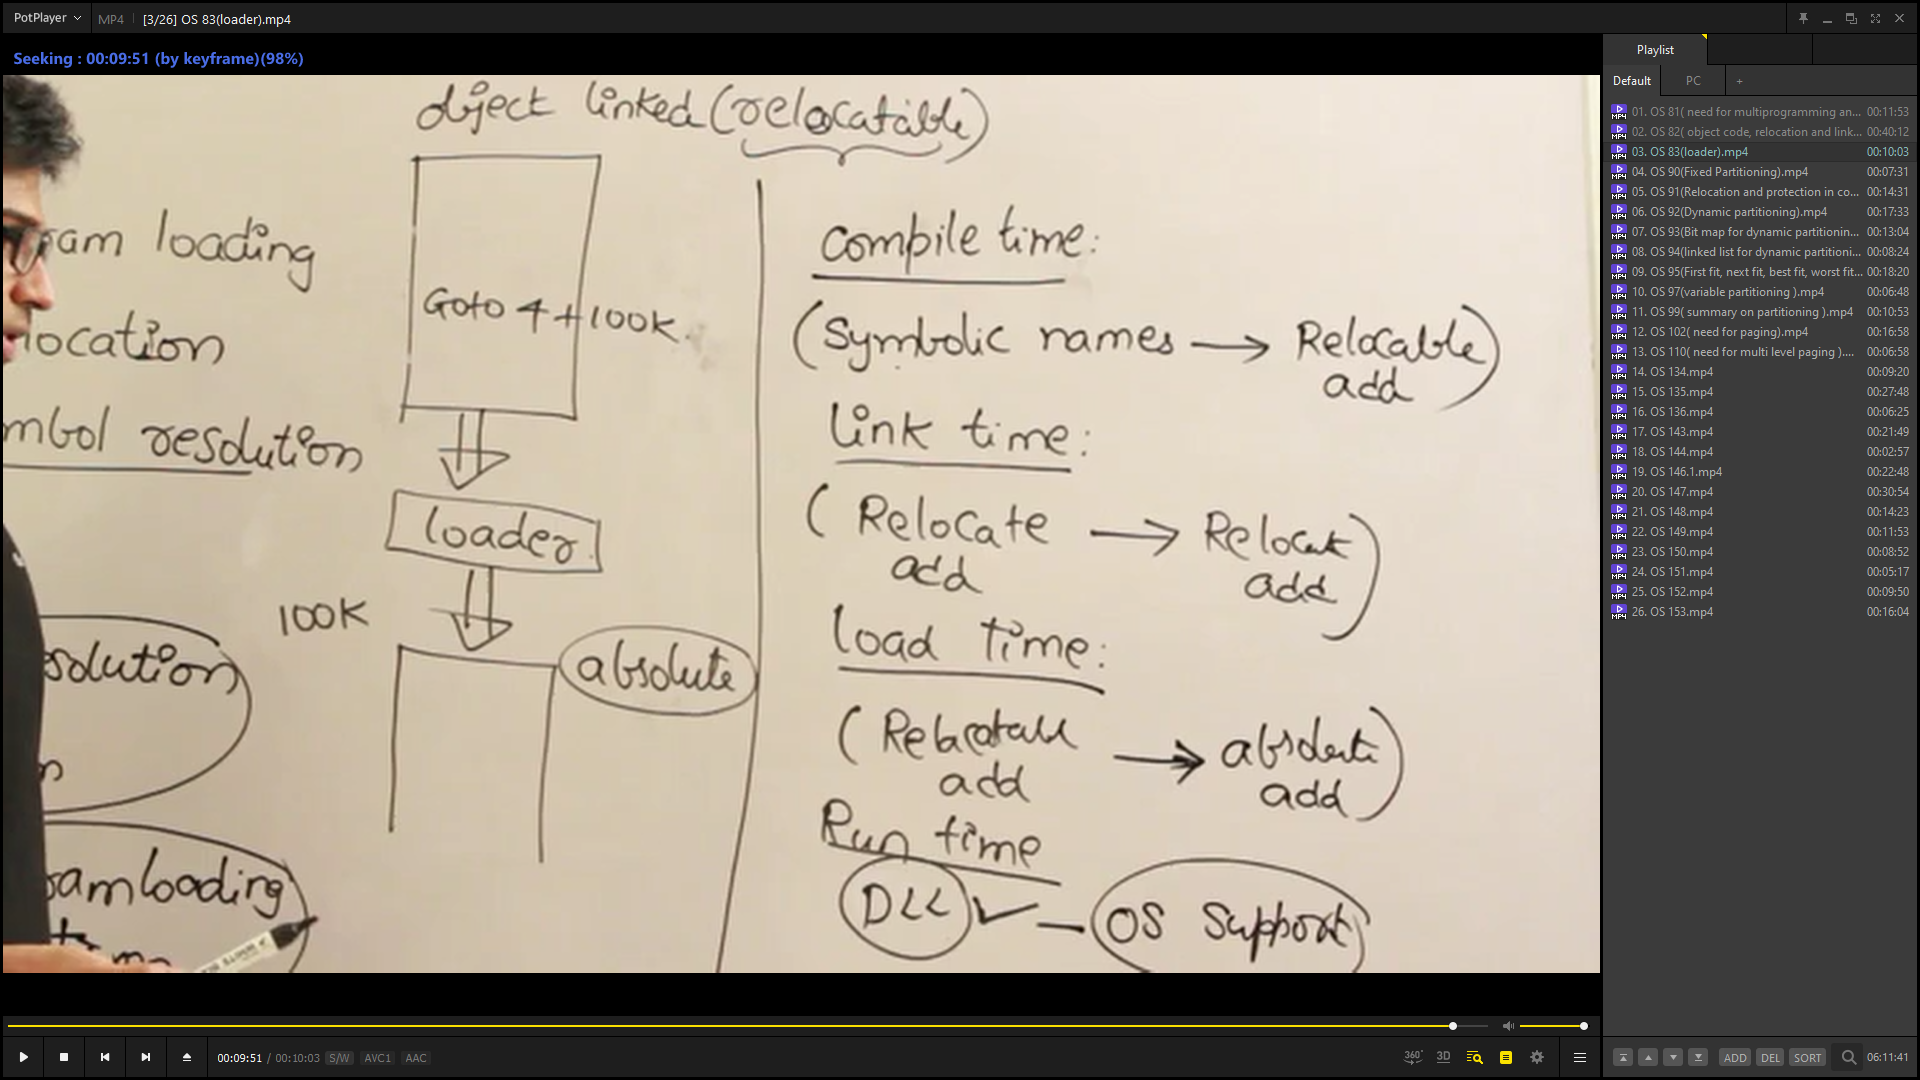 PotPlayer
MP4
[3/26] OS 83(loader).mp4
Seeking : 00:09:51 (by keyframe)(98%)
object linked (relocatable)
am loading
location
mbol resolution
Goto 4+100K
loader
100K
absolute
solution
n
amloading
compile time:
(Symbolic names → Relocable add)
link time:
(Relocate add → Relocat add)
load time:
(Relocatable add → absolute add)
Run time
DLL ✓ — OS Support
00:09:51 / 00:10:03 S/W AVC1 AAC
360° 3D
Playlist
Default PC +
01. OS 81( need for multiprogramming an... 00:11:53
02. OS 82( object code, relocation and link... 00:40:12
03. OS 83(loader).mp4 00:10:03
04. OS 90(Fixed Partitioning).mp4 00:07:31
05. OS 91(Relocation and protection in co... 00:14:31
06. OS 92(Dynamic partitioning).mp4 00:17:33
07. OS 93(Bit map for dynamic partitionin... 00:13:04
08. OS 94(linked list for dynamic partitioni... 00:08:24
09. OS 95(First fit, next fit, best fit, worst fit... 00:18:20
10. OS 97(variable partitioning ).mp4 00:06:48
11. OS 99( summary on partitioning ).mp4 00:10:53
12. OS 102( need for paging).mp4 00:16:58
13. OS 110( need for multi level paging ).... 00:06:58
14. OS 134.mp4 00:09:20
15. OS 135.mp4 00:27:48
16. OS 136.mp4 00:06:25
17. OS 143.mp4 00:21:49
18. OS 144.mp4 00:02:57
19. OS 146.1.mp4 00:22:48
20. OS 147.mp4 00:30:54
21. OS 148.mp4 00:14:23
22. OS 149.mp4 00:11:53
23. OS 150.mp4 00:08:52
24. OS 151.mp4 00:05:17
25. OS 152.mp4 00:09:50
26. OS 153.mp4 00:16:04
ADD DEL SORT 06:11:41